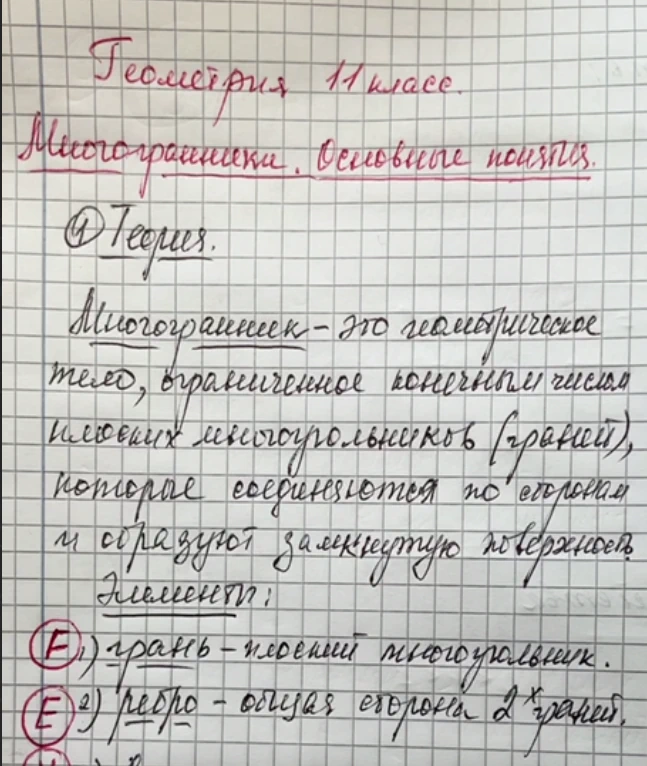 Геометрия 11 класс.
Многогранники. Основные понятия.
① Теория.
Многогранник – это геометрическое
тело, ограниченное конечным числом
плоских многоугольников (граней),
которые соединяются по сторонам
и образуют замкнутую поверхность.
Элементы:
F 1) грань – плоский многоугольник.
E 2) ребро – общая сторона 2х граней.